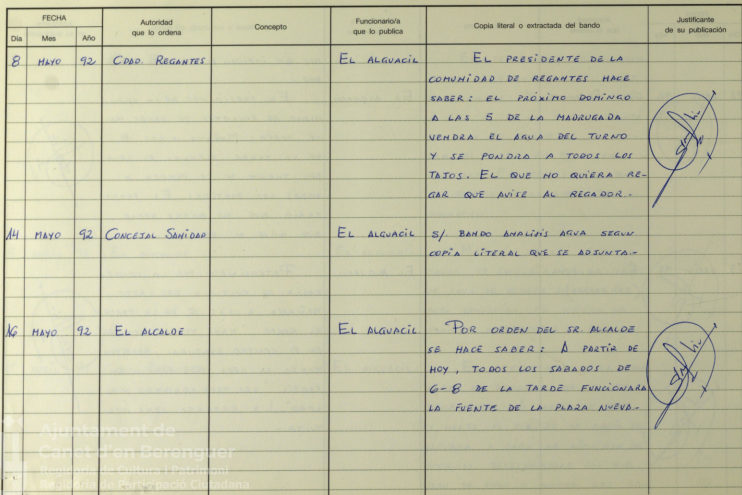 FECHA
Día Mes Año
Autoridad
que lo ordena
Concepto
Funcionario/a
que lo publica
Copia literal o extractada del bando
Justificante
de su publicación
8 MAYO 92 CDAD. REGANTES EL ALGUACIL EL PRESIDENTE DE LA
COMUNIDAD DE REGANTES HACE
SABER: EL PRÓXIMO DOMINGO
A LAS 5 DE LA MADRUGADA
VENDRA EL AGUA DEL TURNO
Y SE PONDRA A TODOS LOS
TAJOS. EL QUE NO QUIERA RE-
GAR QUE AVISE AL REGADOR.
14 MAYO 92 CONCEJAL SANIDAD EL ALGUACIL S/. BANDO ANALISIS AGUA SEGUN
COPIA LITERAL QUE SE ADJUNTA.-
16 MAYO 92 EL ALCALDE EL ALGUACIL POR ORDEN DEL SR. ALCALDE
SE HACE SABER: A PARTIR DE
HOY, TODOS LOS SABADOS DE
6-8 DE LA TARDE FUNCIONARA
LA FUENTE DE LA PLAZA NUEVA.-
Ajuntament de
Canet d'en Berenguer
Regidoria de Cultura i Patrimoni
Regidoria de Participació Ciutadana